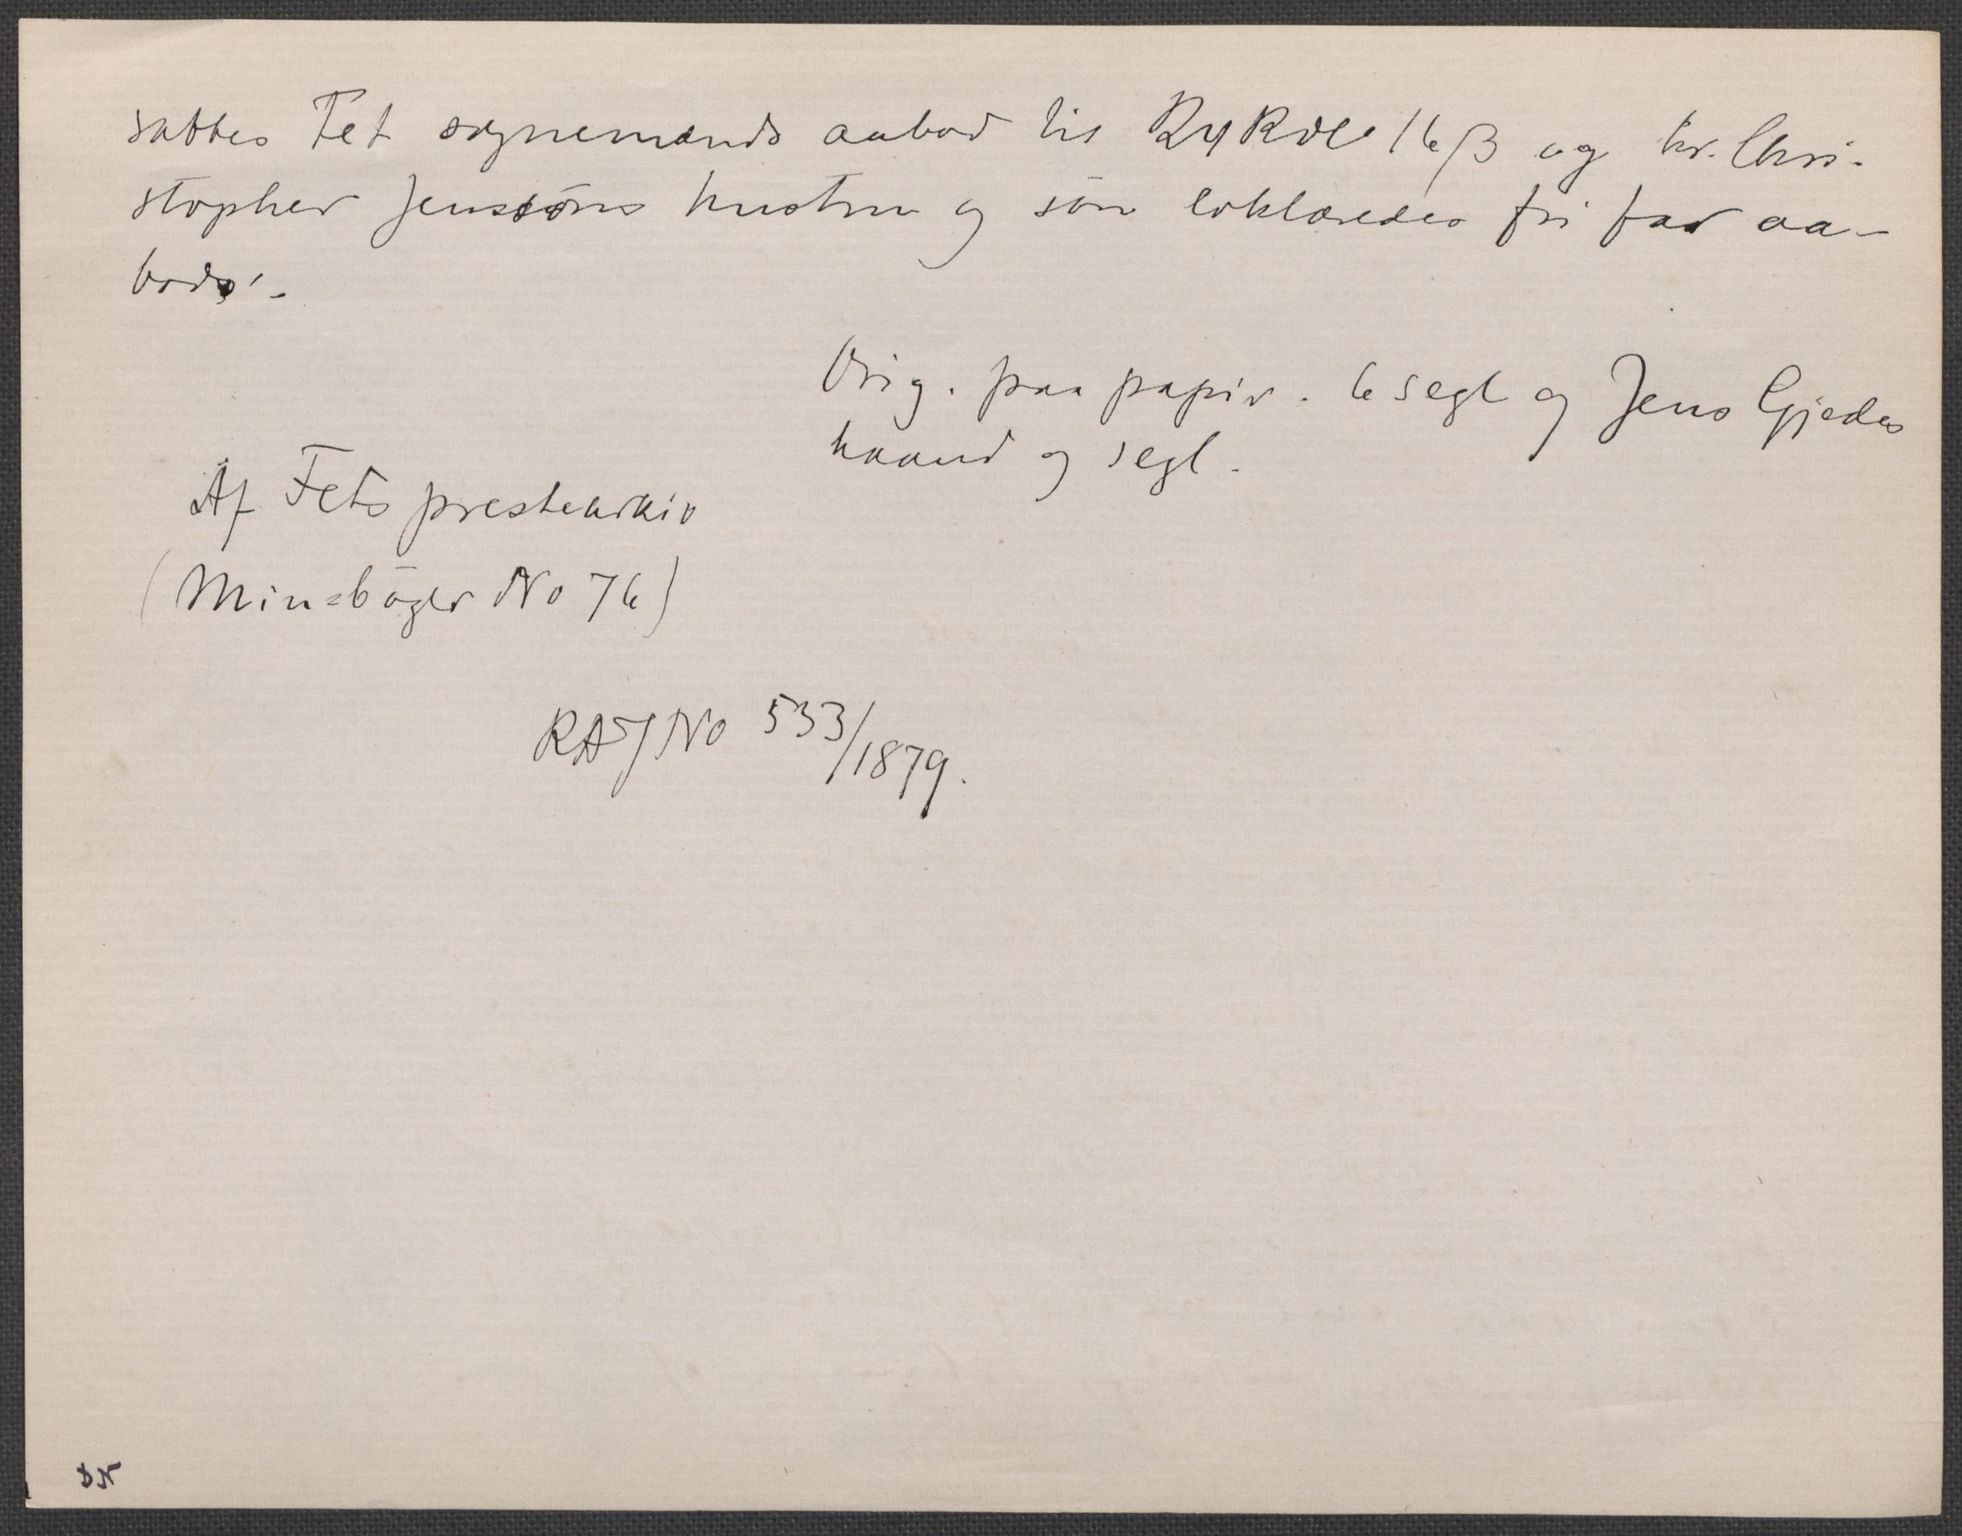 sattes Fet sognemænds aabod til 24 Rdl 16 β og hr. Chri-
stopher Jenssöns hustru og sön erklæredes fri for aa-
bods. -
Orig. paa papir. 6 segl og Jens Gjedes
haand og segl.
Af Fets prestearkiv
(Min=böger No 76)
RAJNo 533/1879.